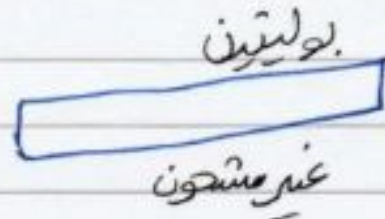 بوليثين
غير مشحون